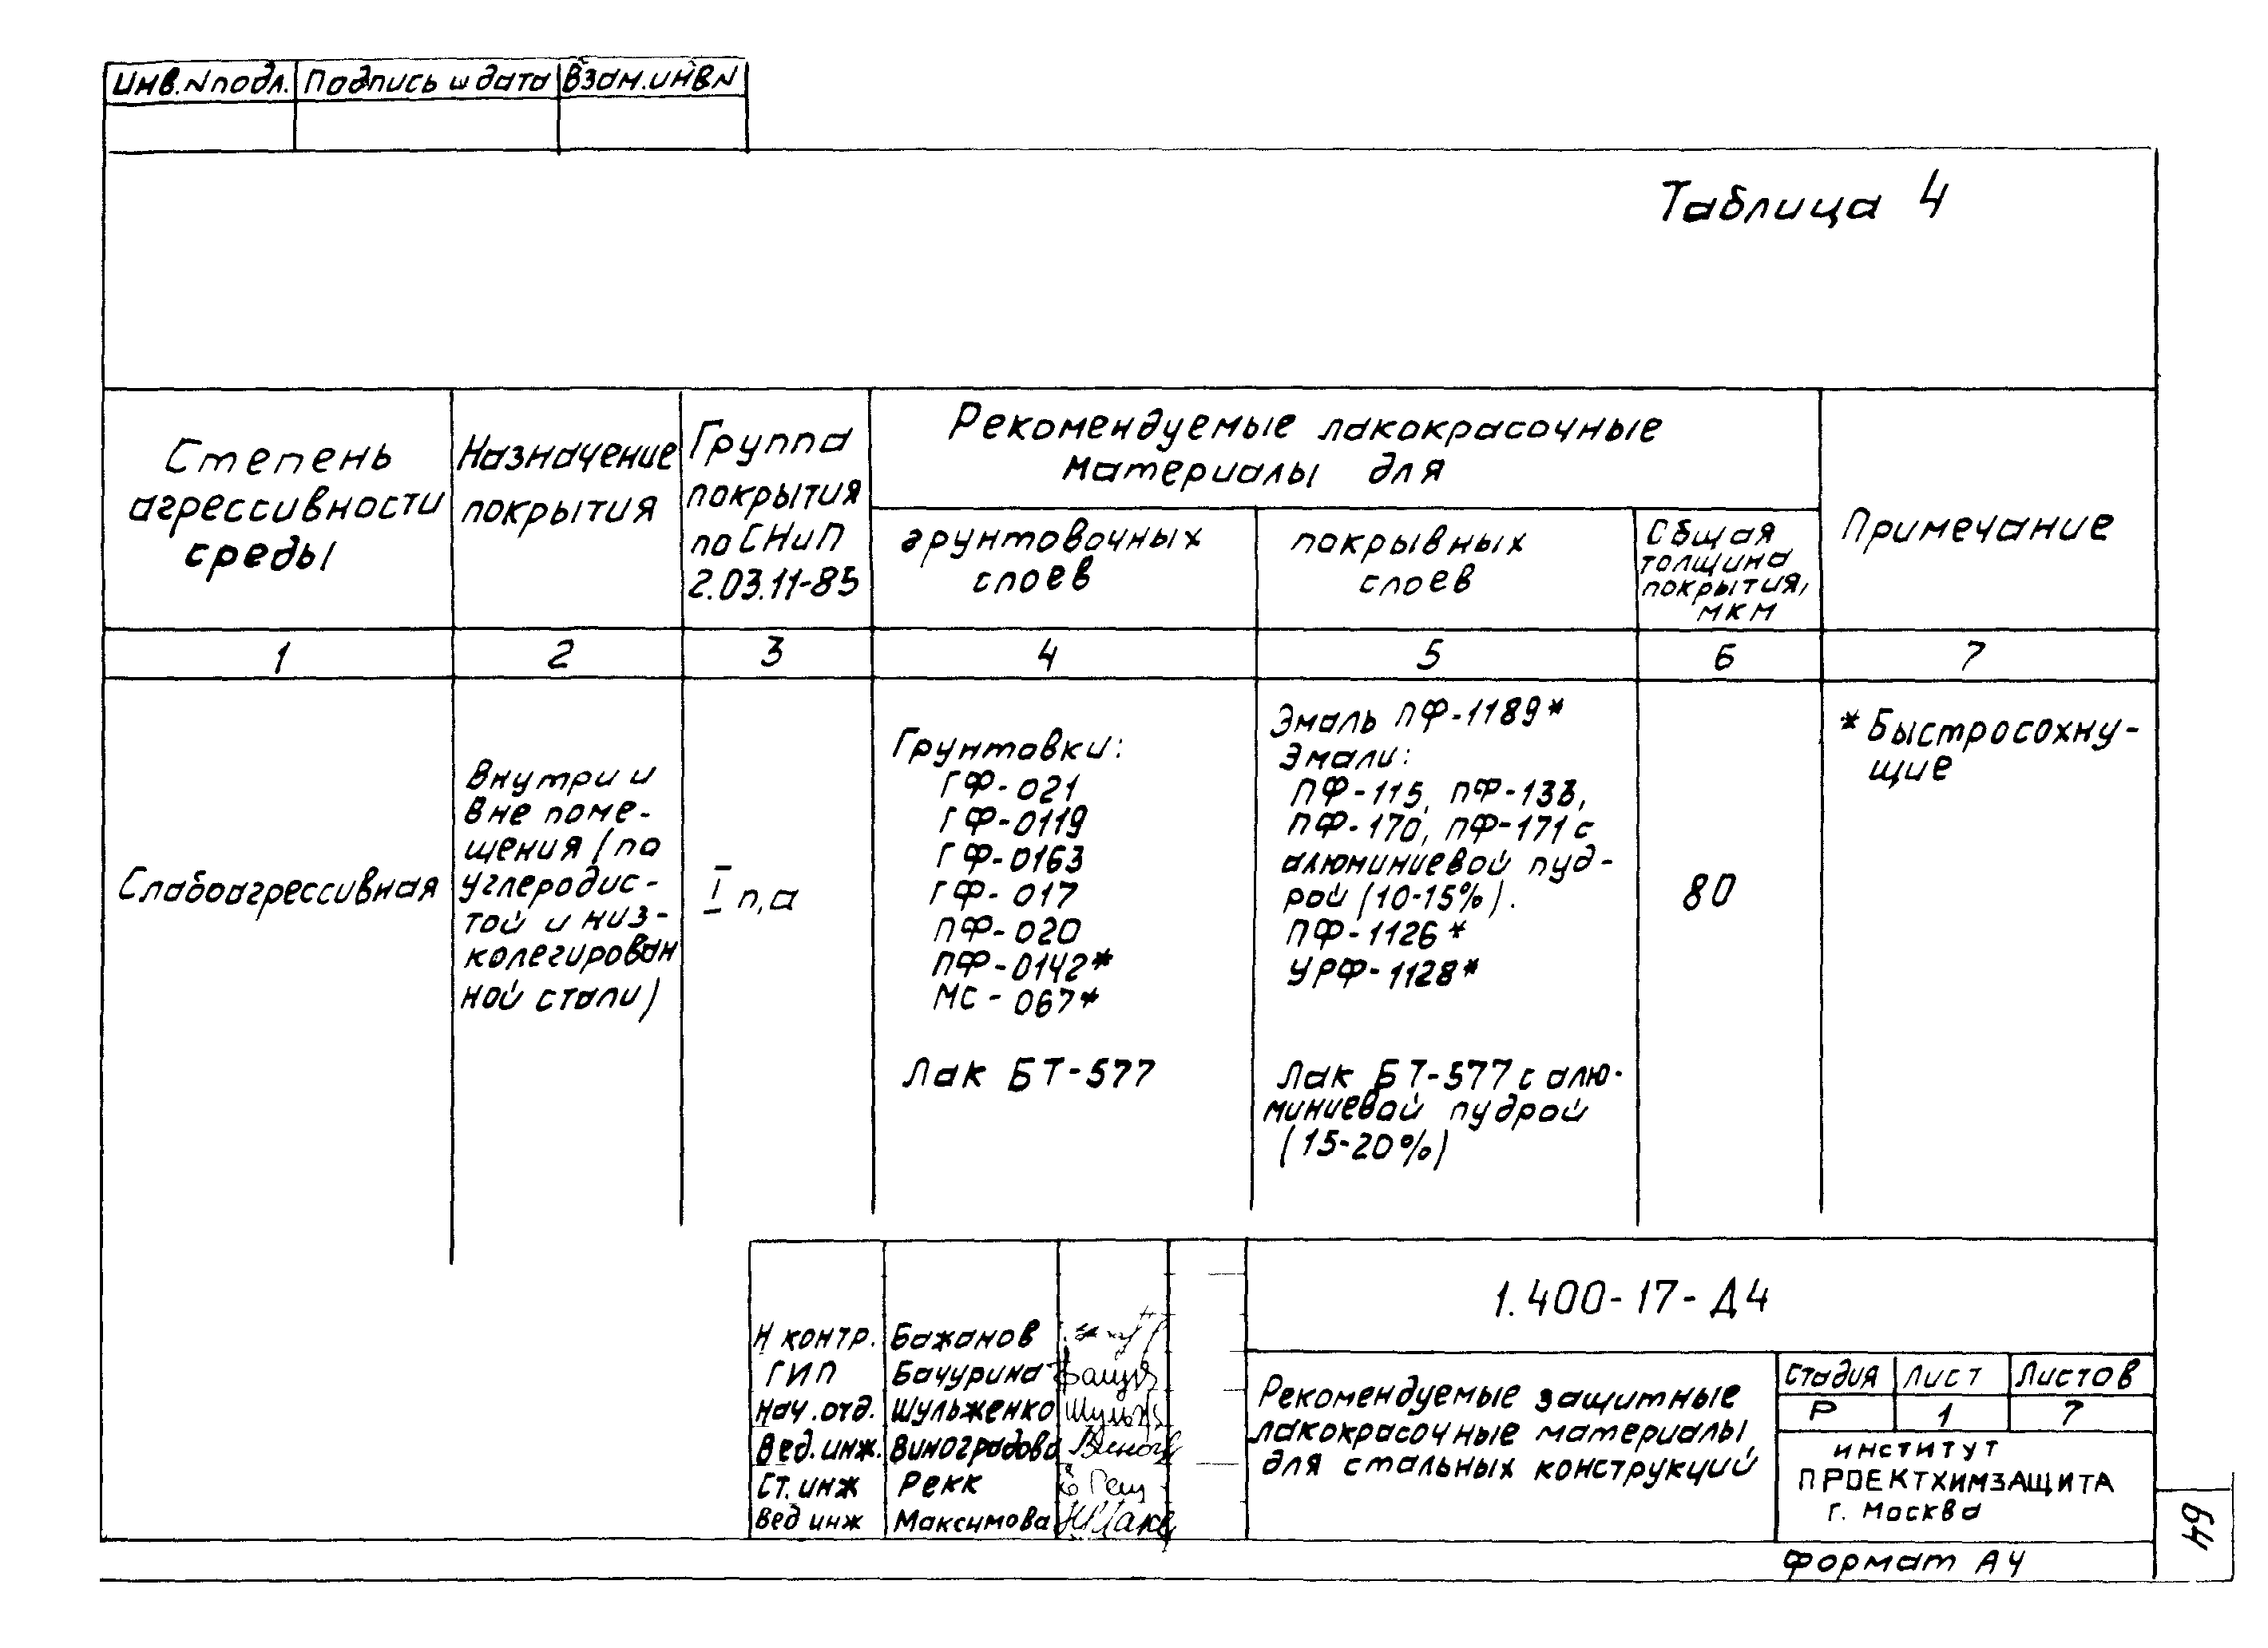 Инв.N подл. Подпись и дата Взам.инвN
Таблица 4
Степень
агрессивности
среды
Назначение
покрытия
Группа
покрытия
по СНиП
2.03.11-85
Рекомендуемые лакокрасочные
материалы для
грунтовочных
слоев
покрывных
слоев
Общая
толщина
покрытия,
мкм
Примечание
1 2 3 4 5 6 7
Слабоагрессивная
Внутри и
вне поме-
щения (по
углеродис-
той и низ-
колегирован
ной стали)
I п,а
Грунтовки:
ГФ-021
ГФ-0119
ГФ-0163
ГФ-017
ПФ-020
ПФ-0142*
МС-067*
Лак БТ-577
Эмаль ПФ-1189*
Эмали:
ПФ-115, ПФ-133,
ПФ-170, ПФ-171 с
алюминиевой пуд-
рой (10-15%).
ПФ-1126*
УРФ-1128*
Лак БТ-577 с алю-
миниевой пудрой
(15-20%)
80
*Быстросохну-
щие
Н контр. Бажанов
ГИП Бачурина
Нач.отд. Шульженко
Вед.инж. Виноградова
Ст.инж Рекк
Вед инж Максимова
1.400-17-Д4
Рекомендуемые защитные
лакокрасочные материалы
для стальных конструкций
Стадия Лист Листов
Р 1 7
ИНСТИТУТ
ПРОЕКТХИМЗАЩИТА
г. Москва
Формат А4
64